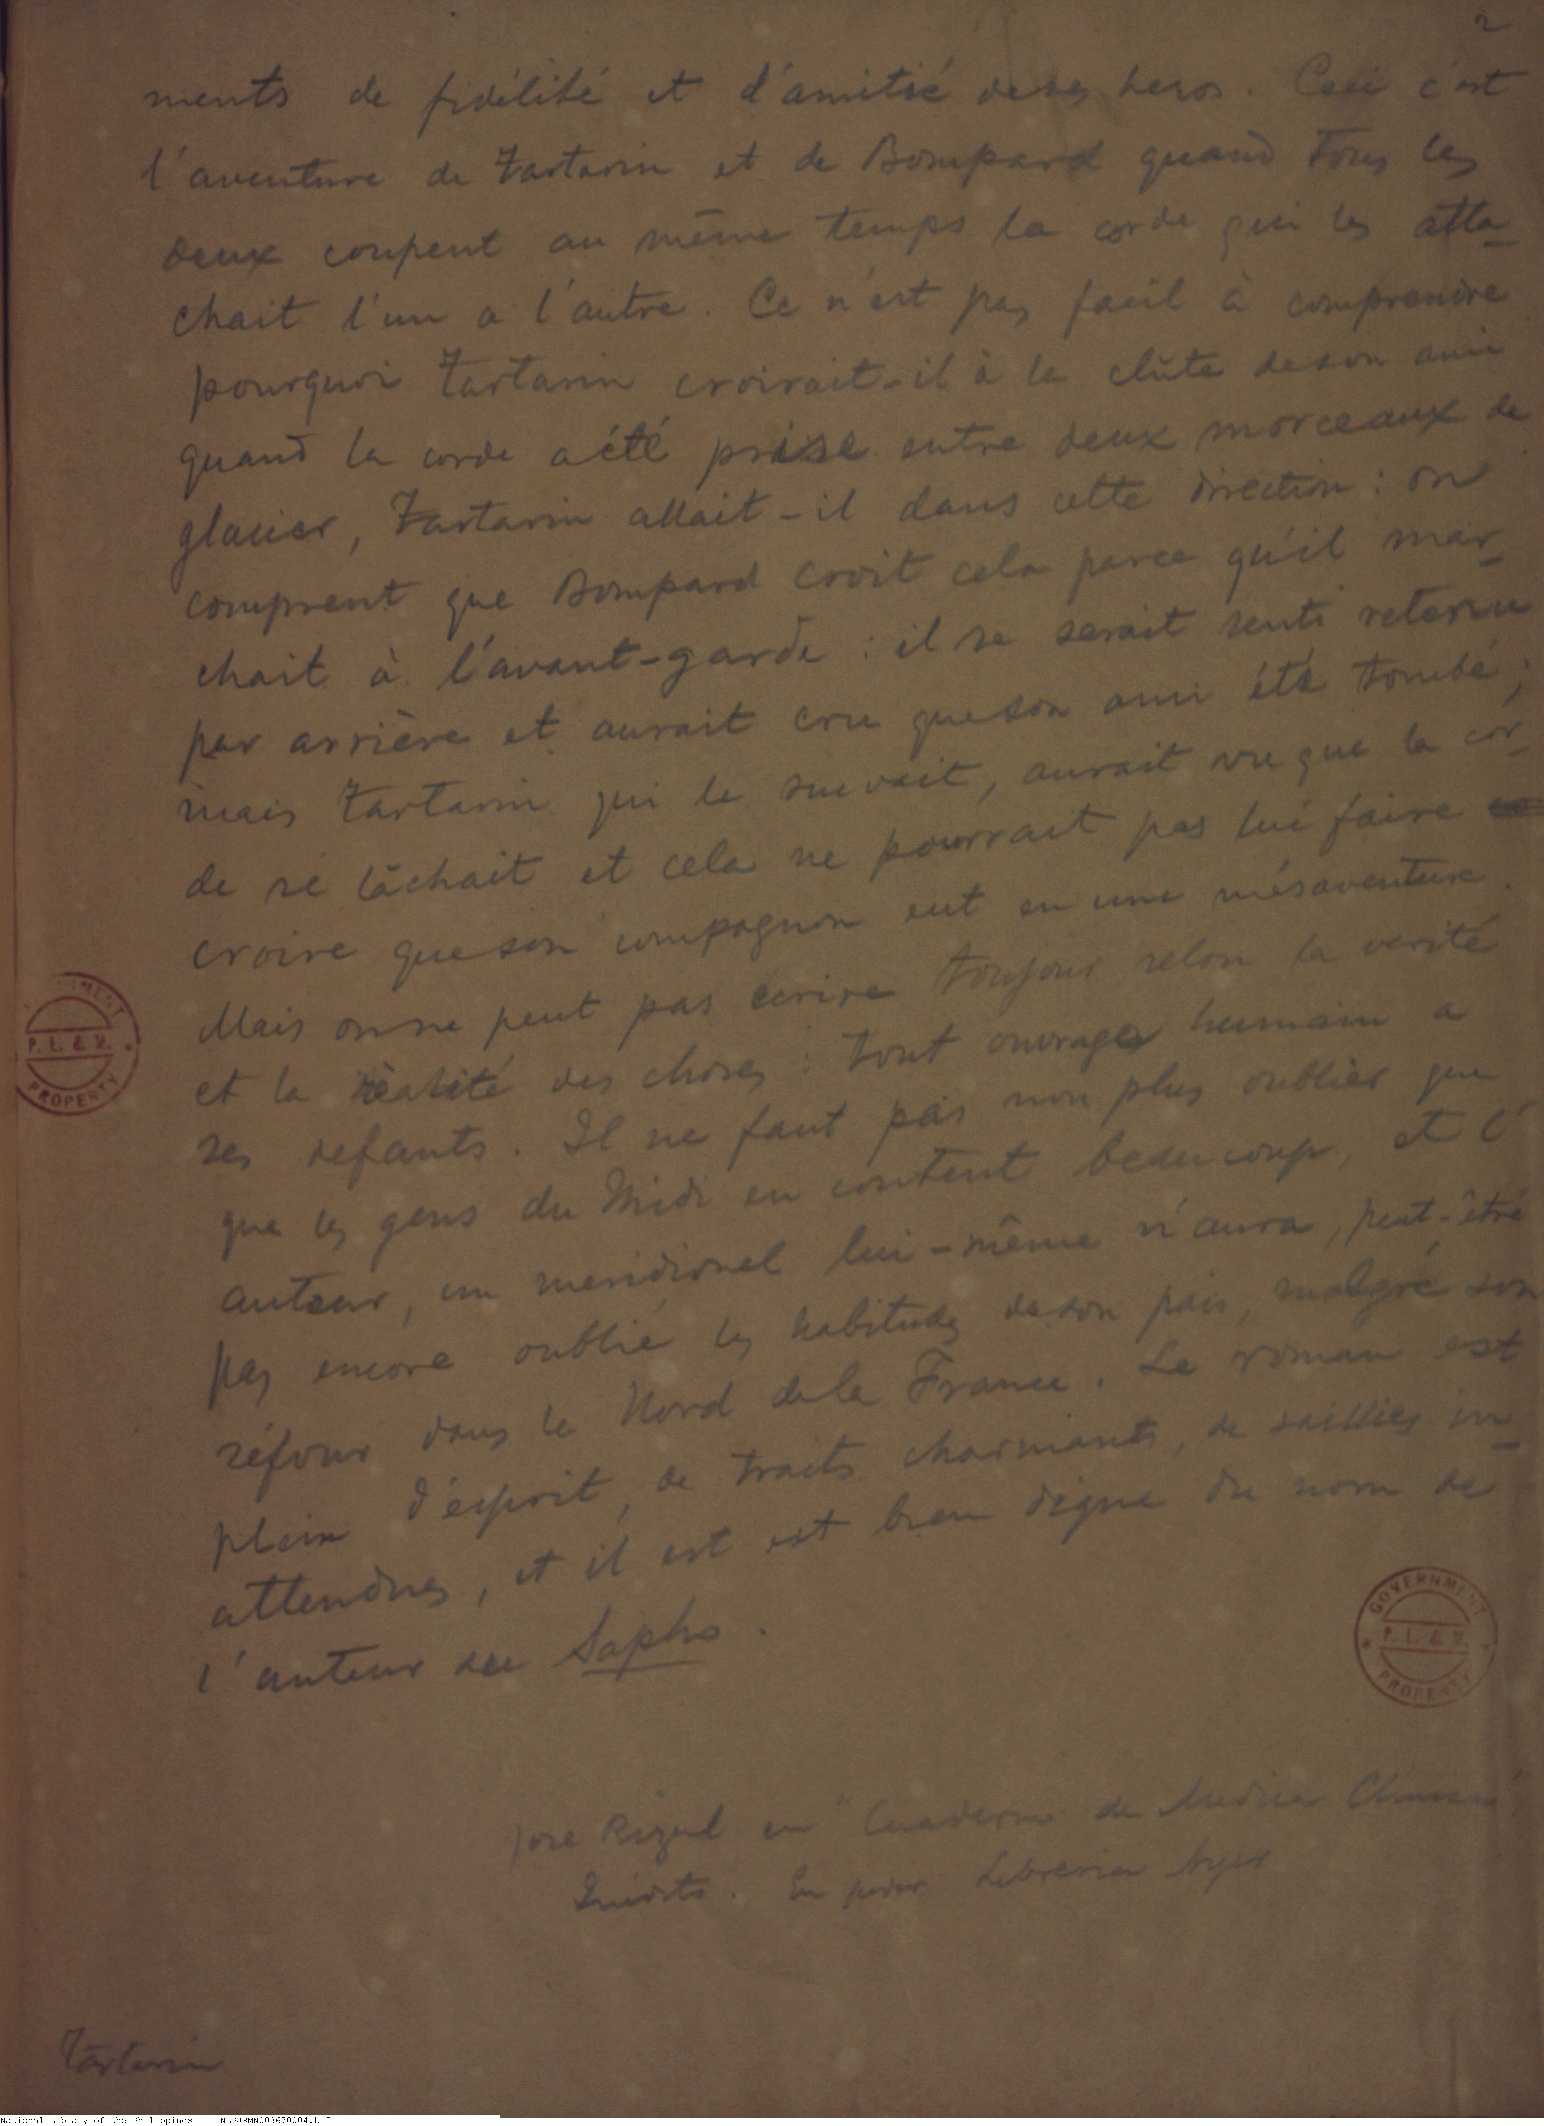 2
ments de fidélité et d'amitié de ses heros. Ceci c'est
l'aventure de Tartarin et de Bompard quand tous les
deux coupent au même temps la corde qui les atta-
chait l'un a l'autre. Ce n'est pas facil à comprendre
pourquoi Tartarin croirait-il à la chûte de son ami
quand la corde a été prise entre deux morceaux de
glacier, Tartarin allait-il dans cette direction: on
comprent que Bompard croit cela parce qu'il mar-
chait à l'avant-garde: il se serait senti retenu
par arrière et aurait cru que son ami été tombé;
mais Tartarin qui le suivait, aurait vu que la cor-
de se lâchait et cela ne pourrait pas lui faire
croire que son compagnon eut eu une mésaventure.
Mais on ne peut pas écrire toujour selon la verité
et la réalité des choses: tout ouvrage humain a
ses defauts. Il ne faut pas non plus oublier que
que les gens du Midi en content beaucoup, et l'
auteur, un meridionel lui-même n'aura, peut-être
pas encore oublié les habitudes de son pais, malgré son
séjour dans le Nord de la France. Le roman est
plein d'esprit, de traits charmants, de saillies in-
attendues, et il est est bien digne du nom de
l'auteur de Sapho.
GOVERNMENT
P. L. & M.
PROPERTY
GOVERNMENT
P. L. & M.
PROPERTY
Jose Rizal en "Cuaderno de Medica
Inedito. En poder Libreria
Tartarin
National Library of the Philippines